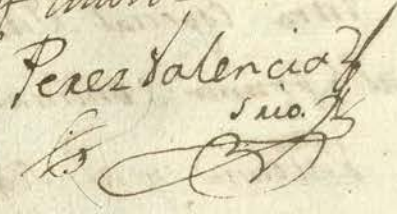 Perez Valencia
srio.